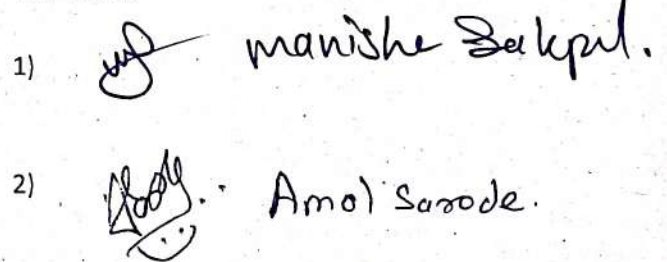 1) manishe Sakpal.
2) Amol Sarode.